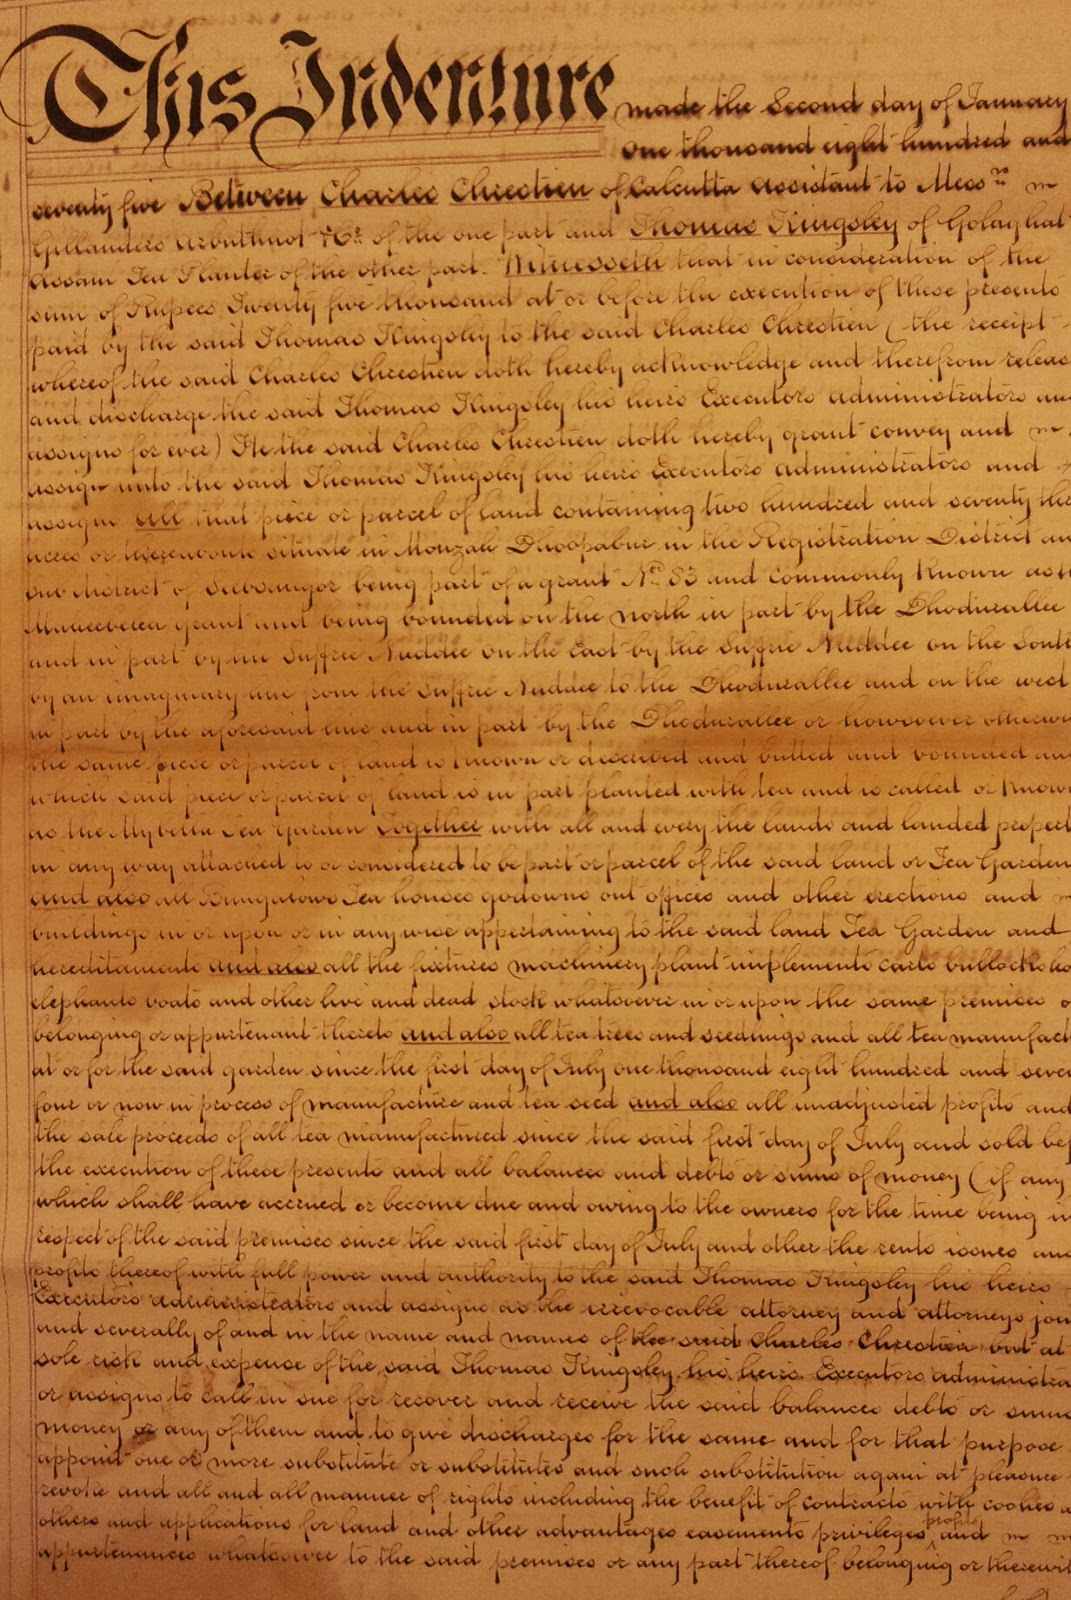 This Indenture made the Second day of January
One thousand eight hundred and
seventy five Between Charles Chrestien of Calcutta Assistant to Messrs
Gillanders Arbuthnot & Co. of the one part and Thomas Kingsley of Golaghat
Assam Tea Planter of the other part. Witnesseth that in consideration of the
sum of Rupees Twenty five thousand at or before the execution of these presents
paid by the said Thomas Kingsley to the said Charles Chrestien (the receipt
whereof the said Charles Chrestien doth hereby acknowledge and therefrom releas
and discharge the said Thomas Kingsley his heirs Executors administrators an
assigns for ever) He the said Charles Chrestien doth hereby grant convey and
assign unto the said Thomas Kingsley his heirs Executors administrators and
assigns all that piece or parcel of land containing two hundred and seventy thr
acres or thereabouts situate in Mouzah in the Registration District an
sub district of Seebsaugor being part of a grant No. 83 and commonly known as
grant and being bounded on the north in part by the Dhodurallee
and in part by the Suffrie Nuddee on the East by the Suffrie Nuddee on the South
by an imaginary line from the Suffrie Nuddee to the Dhodurallee and on the west
in part by the aforesaid line and in part by the Dhodurallee or howsoever otherwi
the same piece or parcel of land is known or described and butted and bounded an
which said piece or parcel of land is in part planted with tea and is called or known
as the Tea Garden Together with all and every the lands and landed propert
in any way attached to or considered to be part or parcel of the said land or Tea Garden
and also all Bungalows Tea houses godowns out offices and other erections and
buildings in or upon or in any wise appertaining to the said land Tea Garden and
hereditaments and also all the fixtures machinery plant implements carts bullocks ho
elephants boats and other live and dead stock whatsoever in or upon the same premises o
belonging or appurtenant thereto and also all tea trees and seedlings and all tea manufact
at or for the said garden since the first day of July one thousand eight hundred and seve
four or now in process of manufacture and tea seed and also all unadjusted profits and
the sale proceeds of all tea manufactured since the said first day of July and sold bef
the execution of these presents and all balances and debts or sums of money (if any
which shall have accrued or become due and owing to the owners for the time being in
respect of the said premises since the said first day of July and other the rents issues and
profits thereof with full power and authority to the said Thomas Kingsley his heirs
Executors administrators and assigns as the irrevocable attorney and attorneys join
and severally of and in the name and names of the said Charles Chrestien but at
sole risk and expense of the said Thomas Kingsley his heirs Executors administra
or assigns to call in sue for recover and receive the said balances debts or sums
money or any of them and to give discharges for the same and for that purpose
appoint one or more substitute or substitutes and such substitution again at pleasure
revoke and all and all manner of rights including the benefit of contracts with coolies a
others and applications for land and other advantages easements privileges profits and
appurtenances whatsoever to the said premises or any part thereof belonging or therewit